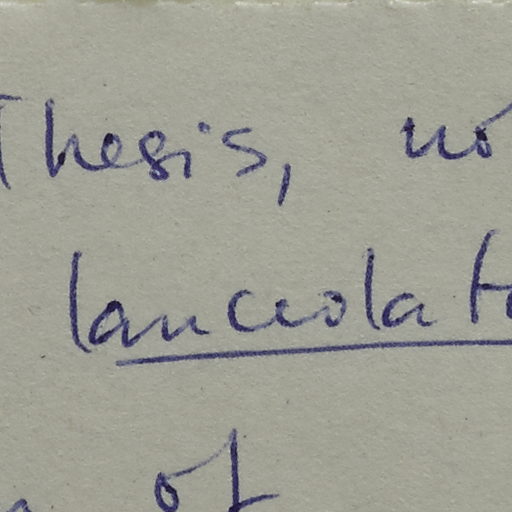 Thesis, no
lanceolat
of